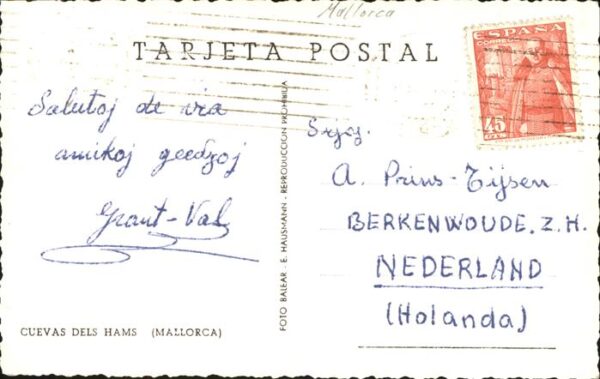 Mallorca
TARJETA POSTAL
ESPAÑA
CORREOS
45
Salutoj de via
amikoj geedzoj
Grant-Val
FOTO BALEAR - E. HAUSMANN - REPRODUCCION PROHIBIDA
Sroj.
A. Prins-Tijsen
BERKENWOUDE. Z. H.
NEDERLAND
(Holanda)
CUEVAS DELS HAMS (MALLORCA)